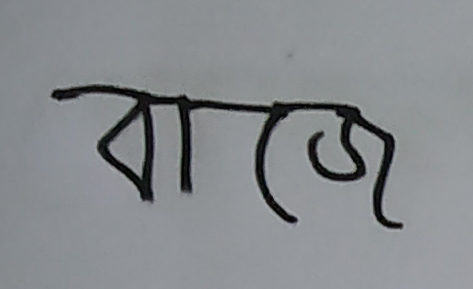 বাজে